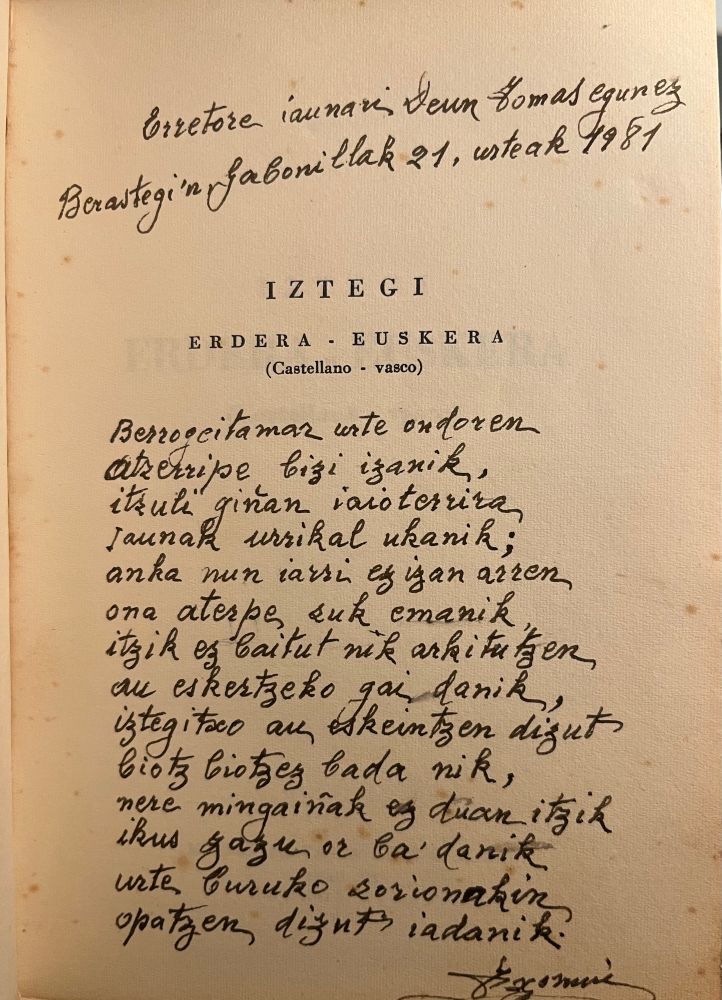 Erretore iaunari, Deun Tomas egunez
Berastegi'n, Gabonillak 21, urteak 1981
IZTEGI
ERDERA - EUSKERA
(Castellano - vasco)
Berrogeitamar urte ondoren
atzerripe bizi izanik,
itzuli giñan iaioterrira
Jaunak urrikal ukanik;
anka nun iarri ez izan arren
ona aterpe, zuk emanik,
itzik ez baitut nik arkitutzen
au eskertzeko gai danik,
iztegitxo au eskeintzen dizut
biotz biotzez bada nik,
nere mingaiñak ez duan itzik
ikus zazu, or ba' danik
urte buruko zorionakin
opatzen dizut iadanik.